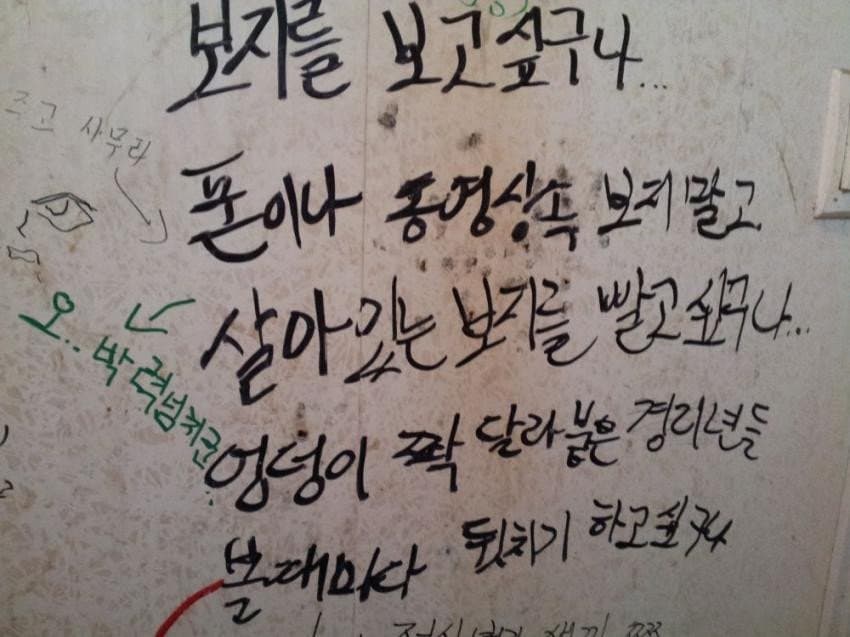 보지를 보고싶구나...
조고 사무라
폰이나 동영상속 보지말고
살아있는 보지를 빨고싶구나...
오.. 박력넘치군..
엉덩이 짝 달라붙은 경리년들
볼때마다 뒷치기 하고싶구나